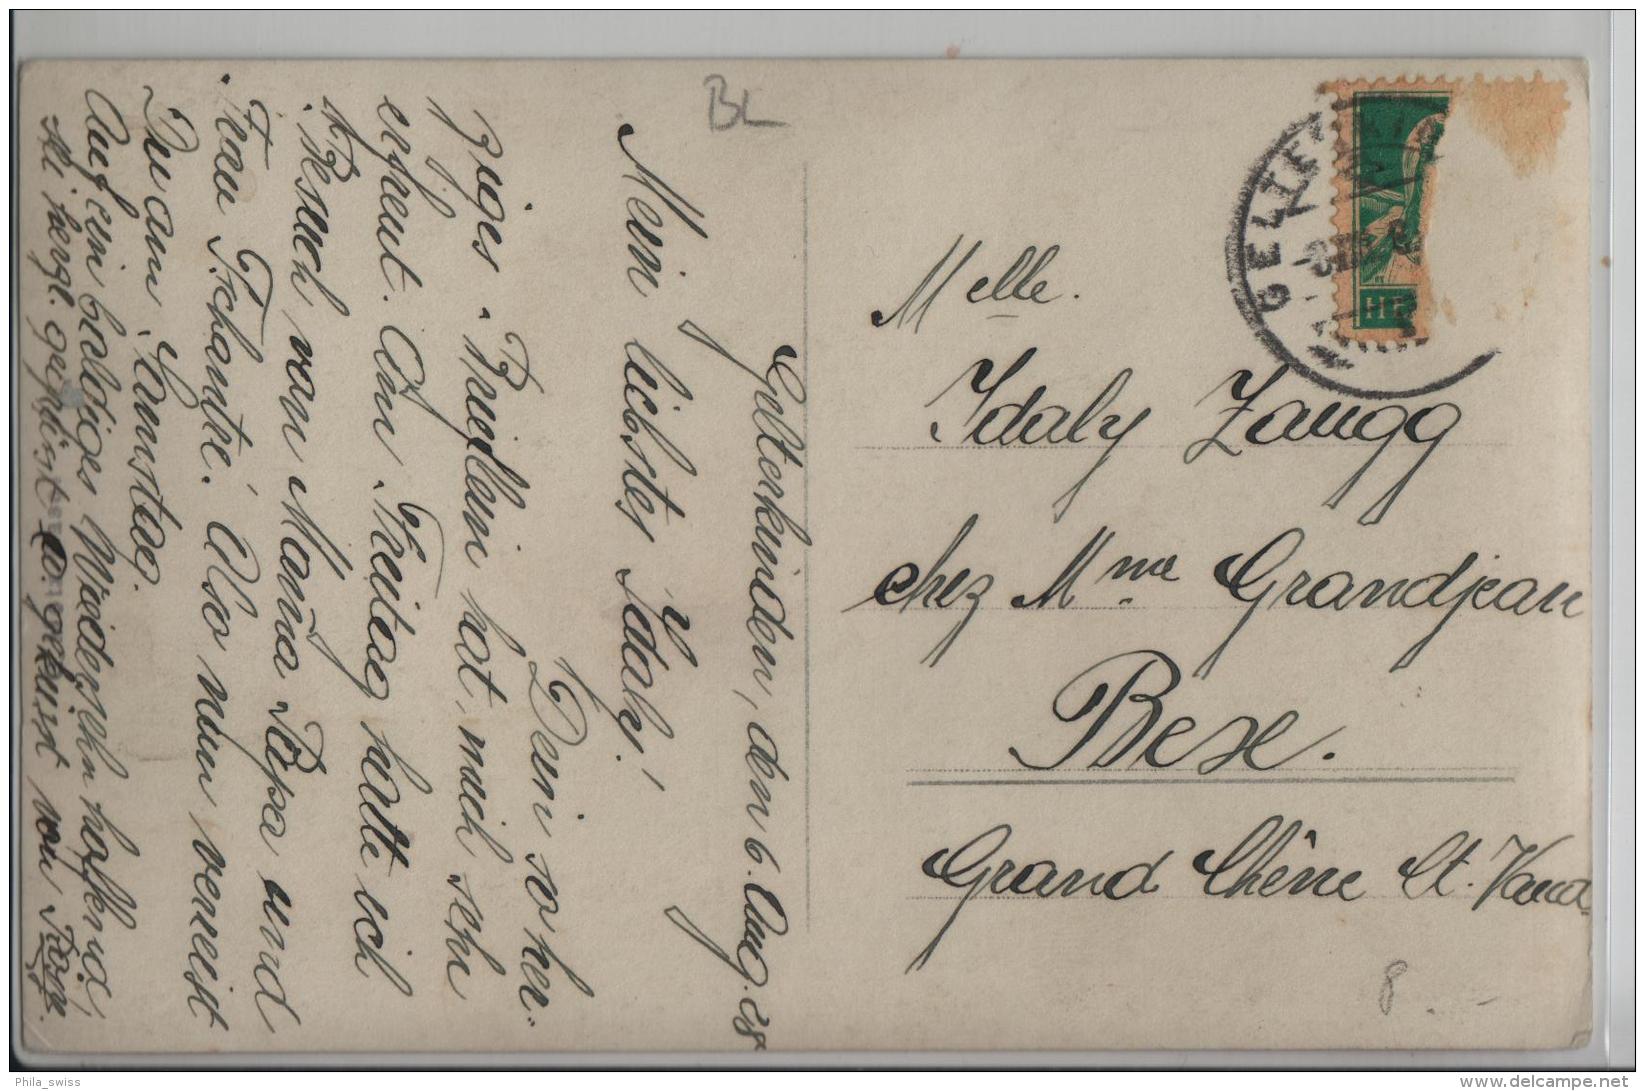 BL
Gelterkinden, den 6. Aug. 28
Mein liebstes Idaly!
Dein so her-
ziges Brieflein hat mich sehr
erfreut. Am Freitag hatte ich
Besuch von Mama Papa und
Frau Tschantré. Also nun verreist
Du am Samstag.
Auf ein baldiges Wiedersehn hoffend,
sei herzl. gegrüsst u. geküsst von
GELTERKI
HE
Melle.
Idaly Zaugg
chez Mme Grandjean
Bex.
Grand Chêne Ct. Vaud
8.-
Phila_swiss
www.delcampe.net